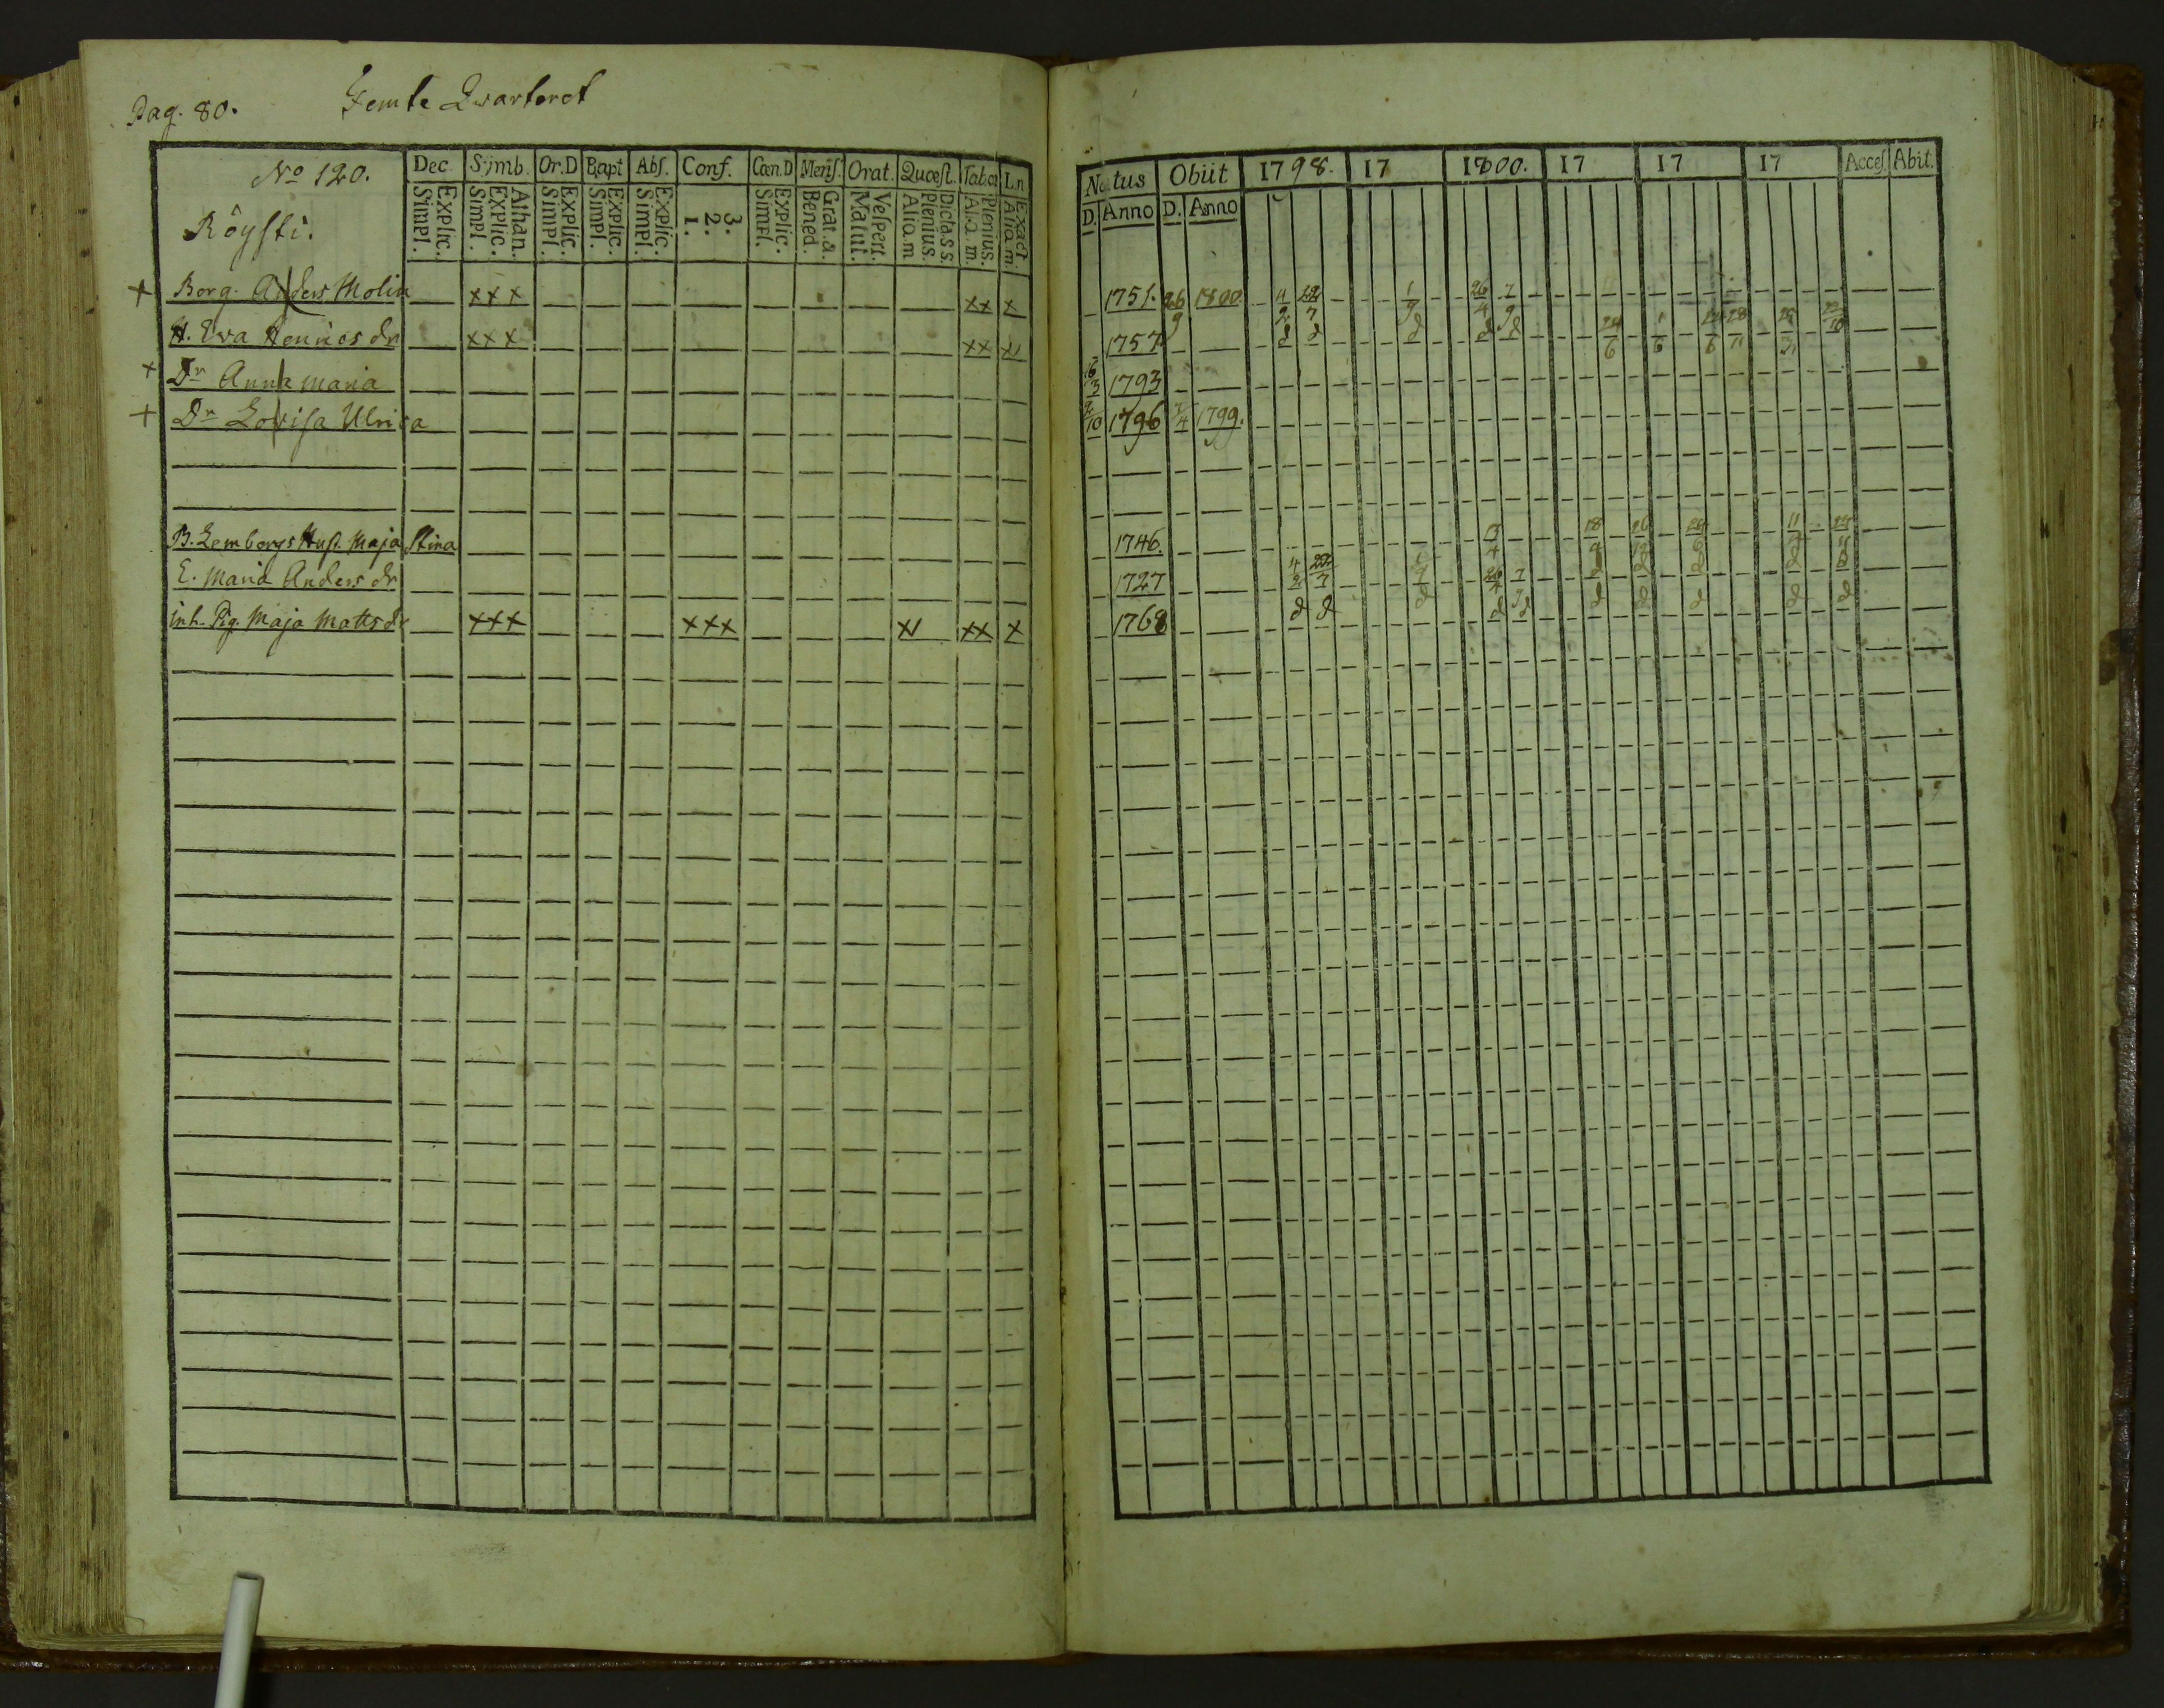 Pag. 80. Femte Qvarteret
No 120. Dec. Sÿmb. Or.D Bapt Abſ. Conf. Cœn.D Menſ. Orat. Quœſt. Natus Obiit 1798. 17 1800. 17 17 17 Acceſ. Abit.
Simpl. Explic. Simpl. Explic. Athan. Simpl. Explic. Simpl. Explic. Simpl. Explic. 1. 2. 3. Simpl. Explic. Bened. Grat. a. Matut. Veſpert. Aliam Plenius. Aliam. Plenius. Aliam. Exact D. Anno D. Anno
Röyſti.
+ Borg. Anders Molin xxx xx x 1751. 26/9 1800 4/2 22/7 1/9 26/4 7/9
H. Eva Hennics dr xxx xx 1757
+ Dr Anna Maria 1793
+ Dr Loviſa Ulrica 1796 1799.
B. Lembergs Huſt. Maja Stina 1746.
E. Maria Anders dr 1727 4/2 22/7
inh. Pig. Maja Matts dr xxx xxx xx x 1768